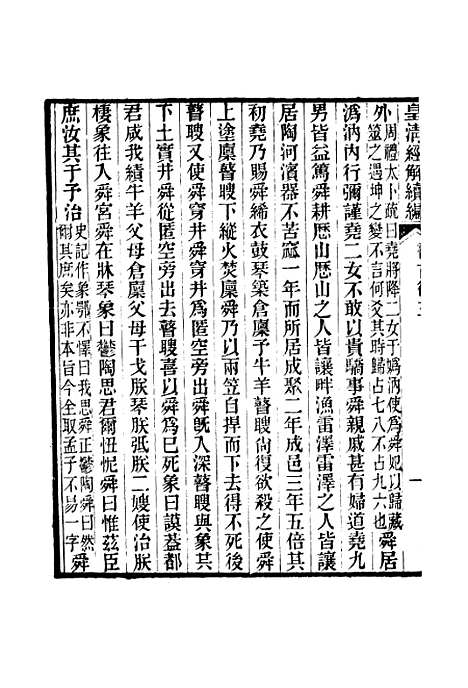 皇清經解續編
一
外周禮太卜疏曰堯將降二女于嬀汭使爲舜妃以歸藏
筮之遇坤之變不言何爻其時歸占七八不占九六也
舜居
嬀汭內行彌謹堯二女不敢以貴驕事舜親戚甚有婦道堯九
男皆益篤舜耕歷山歷山之人皆讓畔漁雷澤雷澤之人皆讓
居陶河濱器不苦窳一年而所居成聚二年成邑三年五倍其
初堯乃賜舜絺衣鼓琴築倉廩予牛羊瞽瞍尙復欲殺之使舜
上塗廩瞽瞍下縱火焚廩舜乃以兩笠自扞下去得不死後
瞽瞍又使舜穿井舜穿井爲匿空旁出舜旣入深瞽瞍與象其
下土實井舜從匿空旁出去瞽瞍喜以舜爲巳死象曰謨葢都
君咸我績牛羊父母倉廩父母干戈朕琴朕弤朕二嫂使治朕
棲象往入舜宮舜在牀琴象曰鬱陶思君爾忸怩舜曰惟茲臣
庶汝其于予治
史記作象鄂不懌曰我思舜正鬱陶舜曰然
爾其庶矣亦非本旨今全取孟子不易一字
舜